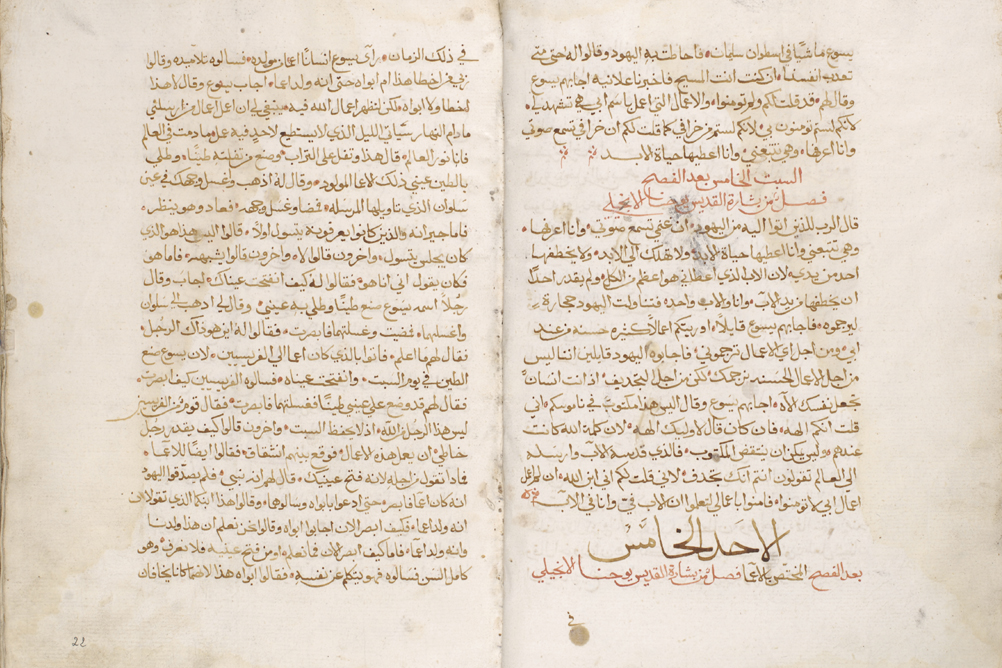 يسوع ماشيًا في اسطوان سليمان فاحاطت به اليهود وقالوا له حتى متى
تعذب انفسنا ان كنت انت المسيح فاخبرنا علانيه اجابهم يسوع
وقال لهم قد قلت لكم ولم تومنوا والاعمال التي اعمل باسم ابي هي تشهد لي
لاكنكم لستم تومنون بي لانكم لستم من خرافي كما قلت لكم ان خرافي تسمع صوتي
وانا اعرفها وهي تتبعني وانا اعطيها حياة الابد
السبت الخامس بعد الفصح
فصل من بشارة القديس يوحنا الانجيلي
قال الرب للذين اتوا اليه من اليهود ان غنمي تسمع صوتي وانا اعرفها
وهي تتبعني وانا اعطيها حياة الابد ولا تهلك الى الابد ولا يخطفها
احد من يدي لان الاب الذي اعطاني هو اعظم من الكل ولم يقدر احدًا
ان يخطفها من يد الاب وانا والاب واحد فتناولت اليهود حجارة
ليرجموه فاجابهم يسوع قايلًا اوريتكم اعمالًا كثيره حسنه من عند
ابي ومن اجل اي الاعمال ترجموني فاجابوه اليهود قايلين اننا ليس
من اجل الاعمال الحسنه نرجمك لكن من اجل التجديف اذ انت انسان
تجعل نفسك الاه اجابهم يسوع وقال اليس هذا مكتوب في ناموسكم اني
قلت انكم الهه فان كان قال لاوليك الهه لان كلمة الله كانت
عندهم وليس يمكن ان ينتقض المكتوب فالذي قدسه الاب وارسله
الى العالم تقولون انتم انك تجدف لاني قلت لكم اني ابن الله ان لم اعمل
اعمال ابي لا تومنوا فامنوا باعمالي لتعلموا ان الاب في وانا في الاب
الاحد الخامس
بعد الفصح المختص بالاعما فصل من بشارة القديس يوحنا الانجيلي
في
في ذلك الزمان راى يسوع انسانًا اعما من مولده فسالوه تلاميذه وقالوا
ربي من اخطا هذا ام ابواه حتى انه ولد اعما اجاب يسوع وقال لا هذا
اخطا ولا ابواه لكن لتظهر اعمال الله فيه ينبغي لي ان اعمل اعمال من ارسلني
ما دام النهار سياتي الليل الذي لا يستطيع لاحد فيه عمل وما دمت في العالم
فانا نور العالم قال هذا وتفل على التراب وصنع من تفلته طينًا وطلى
بالطين عيني ذلك الاعما المولود وقال له اذهب واغسل وجهك في عين
سلوان الذي تاويلها المرسله فمضا وغسل وجهه فعاد وهو ينظر
فاما جيرانه والذين كانوا يعرفونه يتسول اولًا قالوا اليس هذا هو الذي
كان يجلس يتسول واخرون قالوا لا واخرون قالوا يشبهه فاما هو
فكان يقول اني انا هو فقالوا له كيف انفتحت عيناك اجاب وقال
رجلًا اسمه يسوع صنع طينًا وطلى به عيني وقال لي اذهب الى سلوان
واغسلها فمضيت وغسلتها فابصرت فقالوا له اين هو ذاك الرجل
فقال لهم ما اعلم فاتوا بالذي كان اعما الى الفريسيين لان يسوع صنع
الطين في يوم السبت وانفتحت عيناه فسالوه الفريسيين كيف ابصرت
فقال لهم قد وضع على عيني طينًا فغسلتهما فابصرت فقال قوم من الفريسيين
ليس هذا الرجل من الله اذ لا يحفظ السبت واخرون قالوا كيف يقدر رجل
خاطي ان يعمل هذه الاعمال فوقع بينهم انشقاق فقالوا ايضًا للاعما
فاذا تقول من اجله لانه فتح عينيك قال لهم انه نبي فلم يصدقوا اليهود
انه كان اعما فابصر حتى ادعوا بابواه وسالوهما وقالوا هذا ابنكما الذي تقولا ان
انه ولد اعما فكيف ابصر الان اجابوا ابواه وقالوا نحن نعلم ان هذا ولدنا
وانه ولد اعما فاما كيف ابصر الان فما نعلم او من فتح عينيه فلا نعرف وهو
كامل السن فسالوه فهو يتكلم عن نفسه فقالوا ابواه هذا لانهما كانا يخافان
22